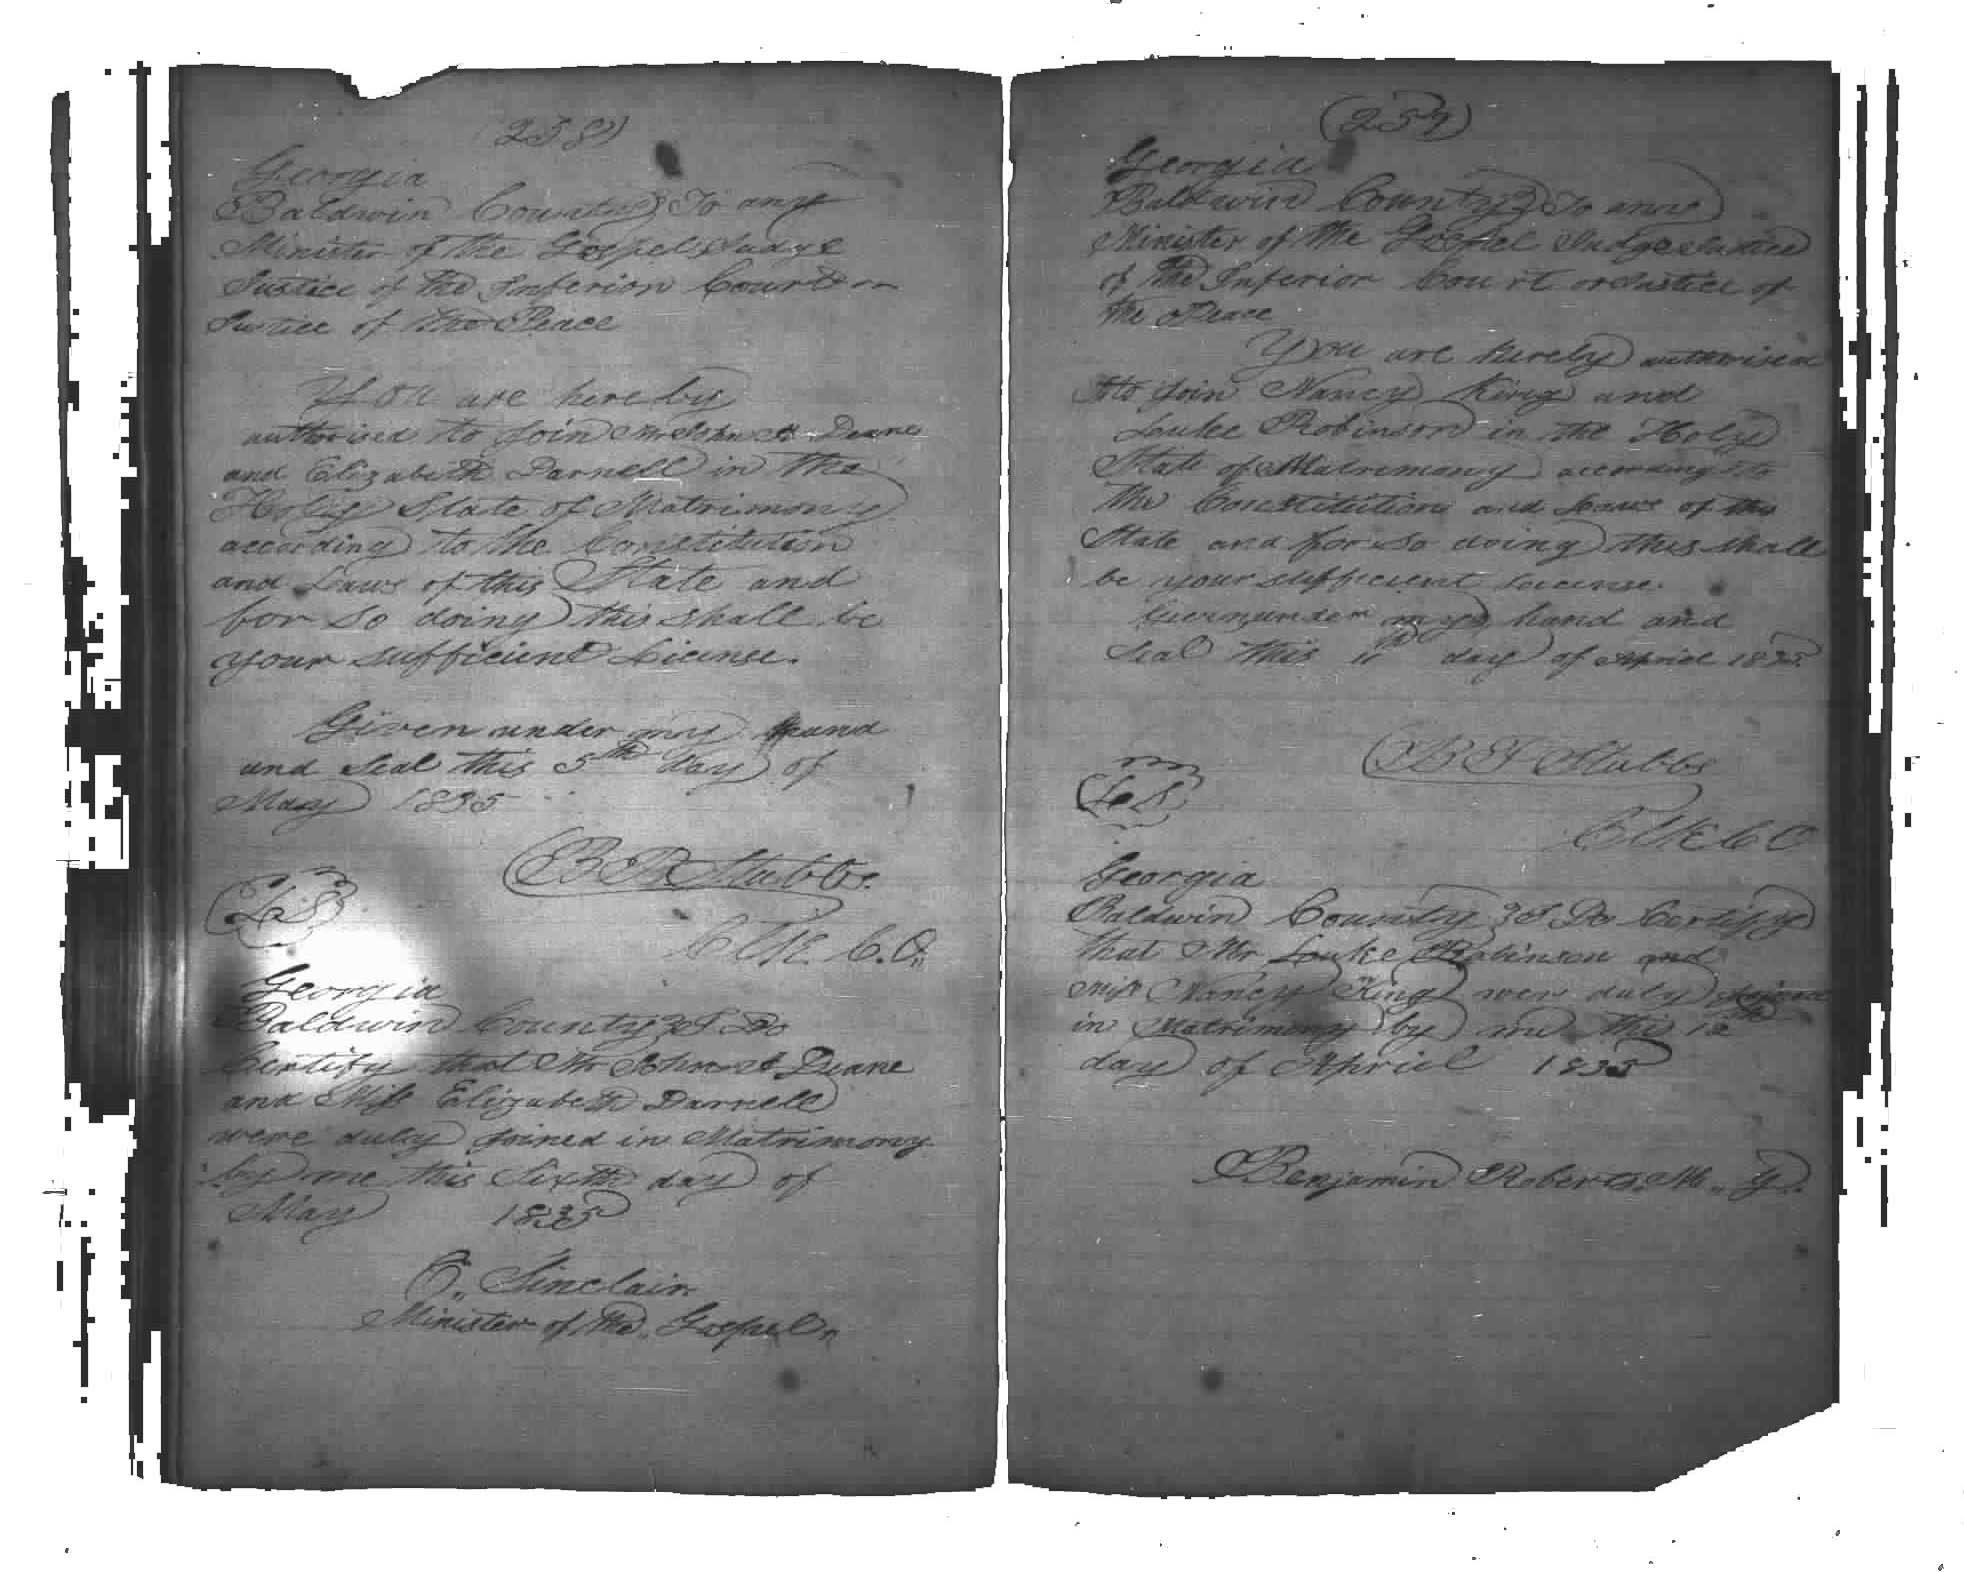 (258)
Georgia
Baldwin County } To any
Minister of the Gospel Judge
Justice of the Inferior Court or
Justice of the Peace
You are hereby
authorised to join Mr John A Deane
and Elizabeth Darnell in the
Holy State of Matrimony
according to the Constitution
and Laws of this State and
for so doing this shall be
your sufficient License.
Given under my hand
and Seal this 5th day of
May 1835
B P Stubbs.
L S
C Clk. C. O.
Georgia
Baldwin County } I Do
Certify that Mr John A Deane
and Miss Elizabeth Darnell
were duly joined in Matrimony
by me this Sixth day of
May 1835
E. Sinclair
Minister of the Gospel
(259)
Georgia
Baldwin County } To any
Minister of the Gospel Judge Justice
of the Inferior Court or Justice of
the Peace
You are hereby authorised
to join Nancy King and
Louke Robinson in the Holy
State of Matrimony according to
the Constitution and Laws of this
State and for so doing this shall
be your sufficient License.
Given under my hand and
Seal this 11th day of April 1835
B P Stubbs
L S
C Clk C O
Georgia
Baldwin County } I Do Certify
that Mr Louke Robinson and
Miss Nancy King were duly joined
in Matrimony by me this 12th
day of April 1835
Benjamin Roberts. M. G.